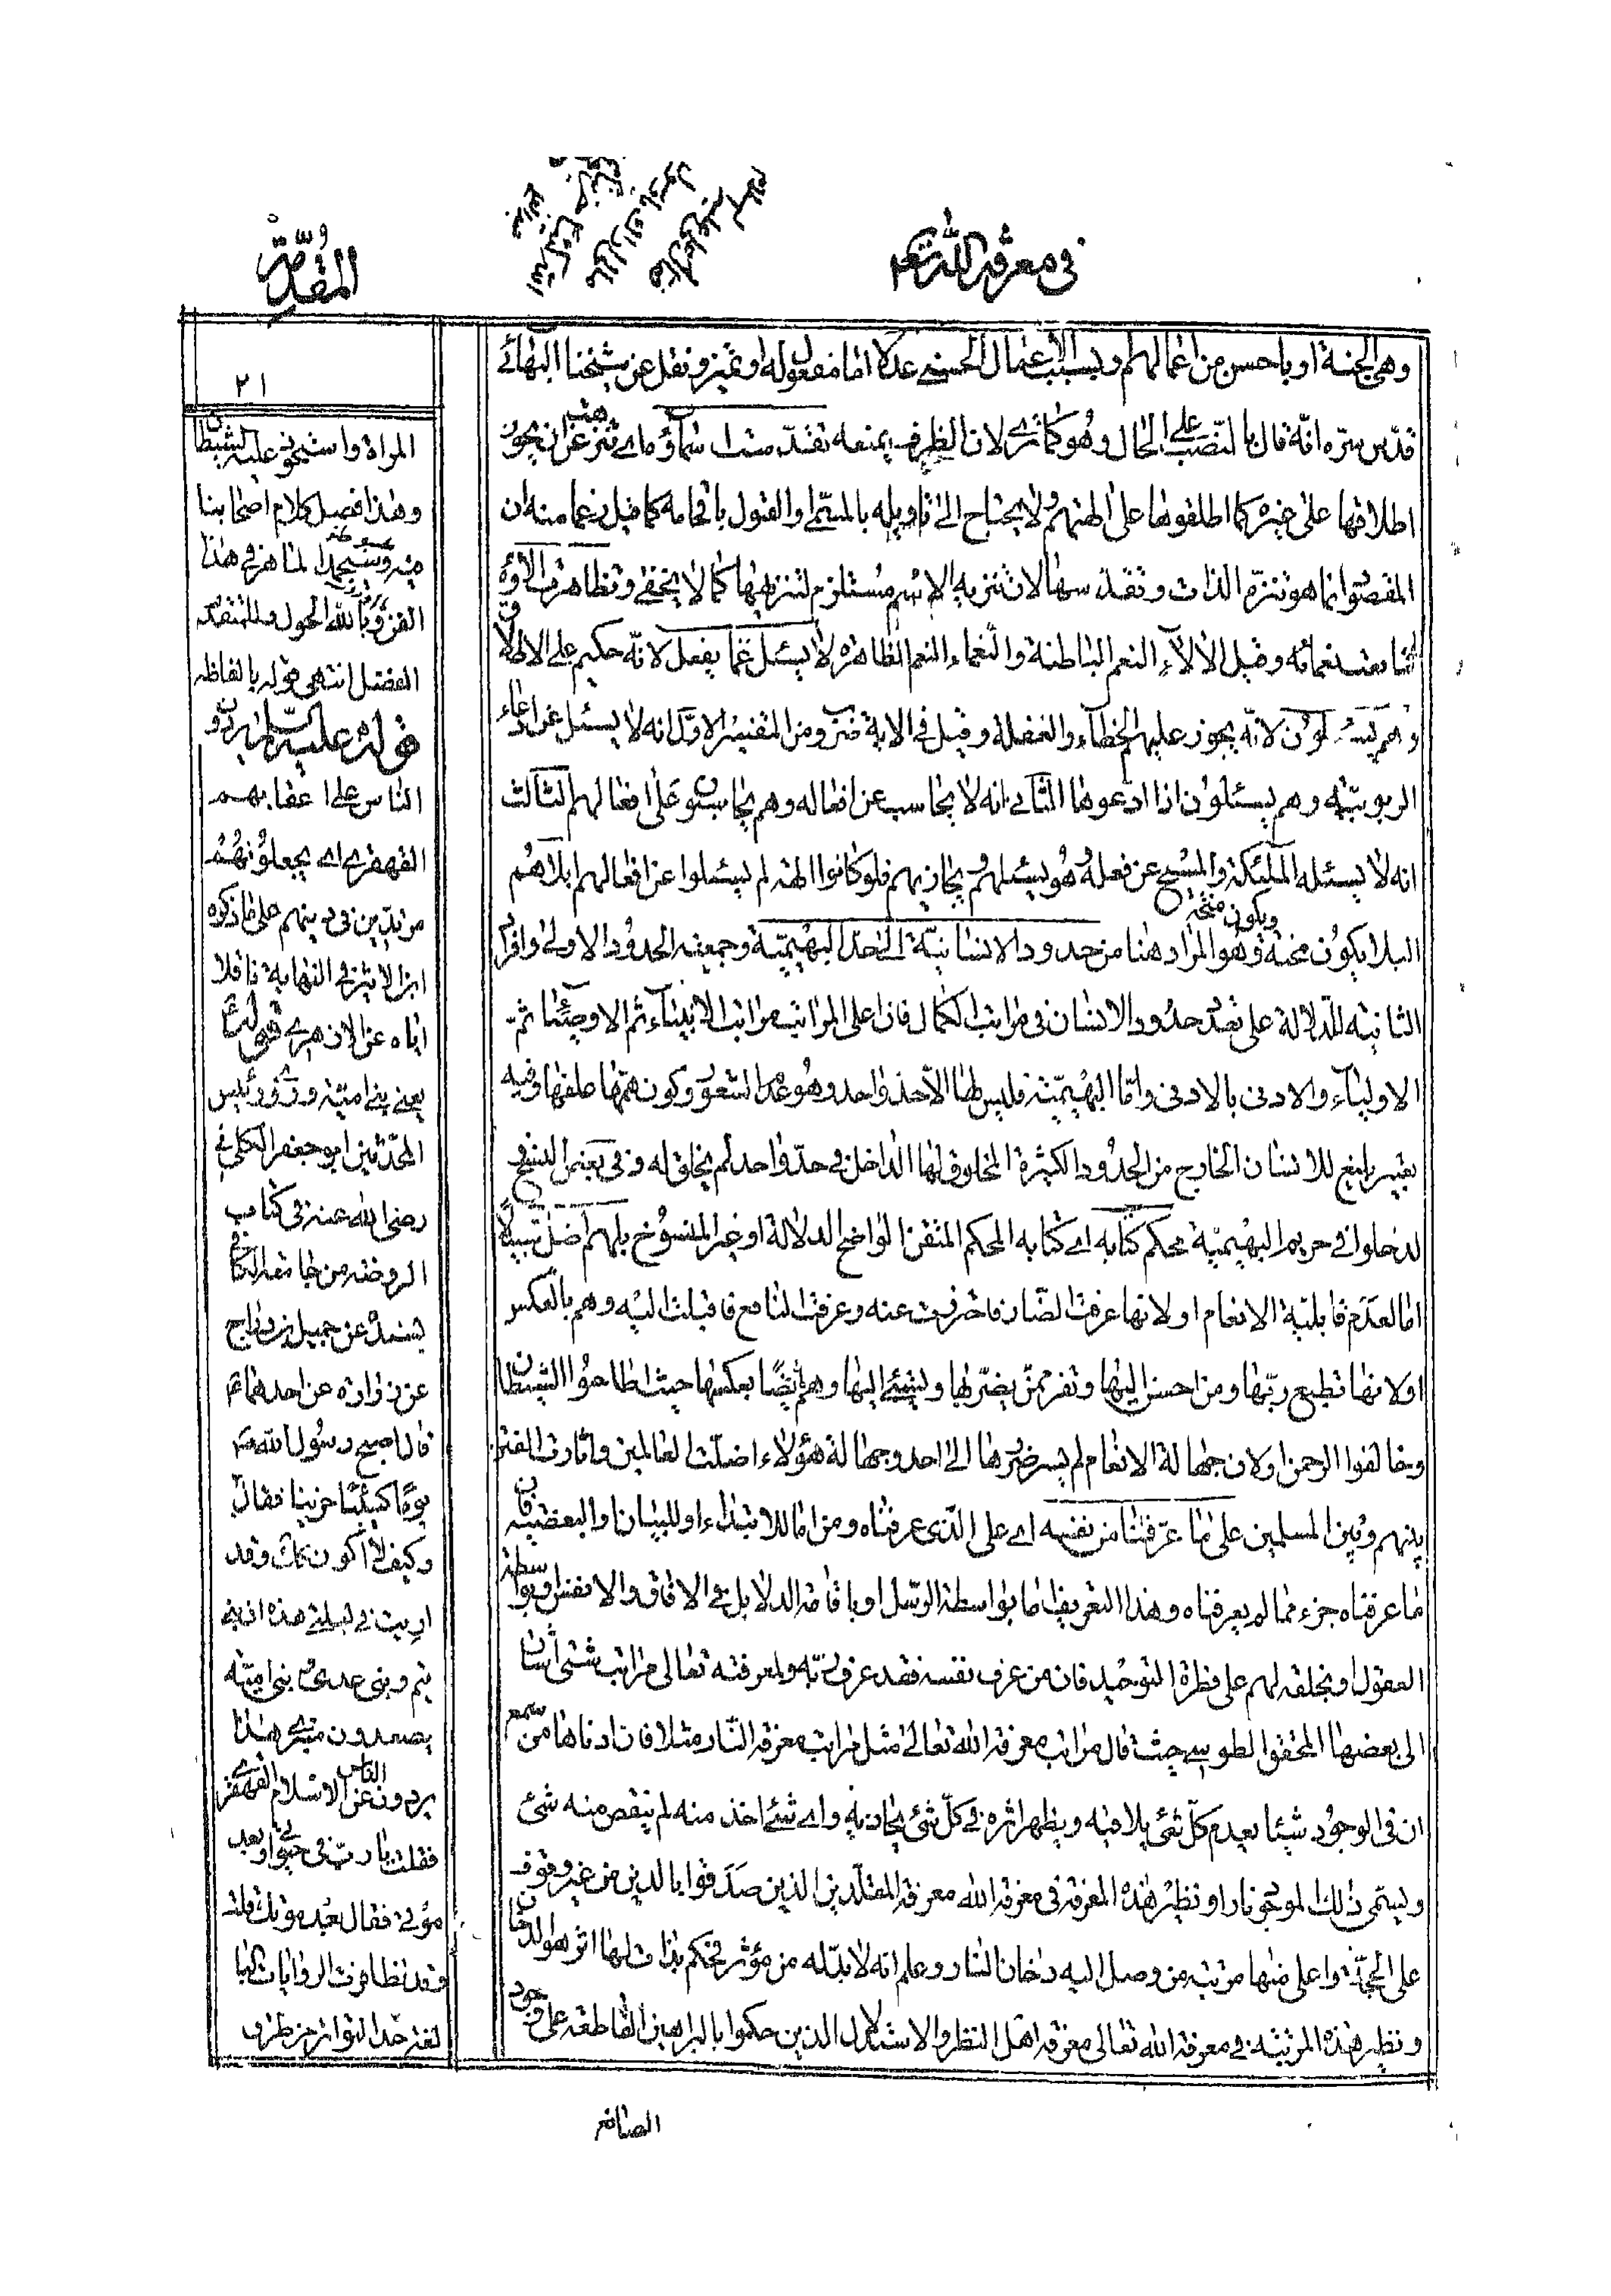 في معرفة الله تعالى
المقدمة
٢١
وهي الجنة او باحسن من اعمالهم وبسبب الاعمال الحسنى عدلا اما مفعول له او تميز ونقل عن شيخنا البهائي
قدس سره انه قال بالنصب على الحال وهو كما ترى لان الظرف يمنعه تقدست اسماؤه اي تنزهت عن ان يجوز
اطلاقها على غيره كما اطلقوها على الهتهم ولا يحتاج الى تاويله بالمسمى والقول باقحامه كما قيل زعما منه ان
المقصود انما هو تنزه الذات وتقدسها لان تنزيه الاسم مستلزم لتنزيهها كما لا يخفى وتظاهرت الاؤه
نعمائه وقيل الالاء النعم الباطنة والنعماء النعم الظاهرة لا يسئل عما يفعل لانه حكيم على الاطلاق
وهم يسئلون لانه يجوز عليهم الخطاء والغفلة وقيل في الاية ضروب من التفسير الاول انه لا يسئل عن ادعاء
الربوبيته وهم يسئلون اذا ادعوها الثاني انه لا يحاسب عن افعاله وهم يحاسبون على افعالهم الثالث
انه لا يسئله الملئكة والمسيح عن فعله وهو يسئلهم ويجازيهم فلو كانوا الهة لم يسئلوا عن افعالهم ابلاهم
البلا يكون محنة ويكون منحة وهو المراد هنا من حدود الانسانية الى حد البهيمية وجمعية الحدود الاولى وافراد
الثانية للدلالة على تعدد حدود الانسان في مراتب الكمال فان اعلى المراتب مراتب الانبياء ثم الاوصياء ثم
الاولياء والادنى بالادنى واما البهيمية فليس لها الا حد واحد وهو عدم الشعور وكون همها علفها وفيه
تعيير بليغ للانسان الخارج من الحدود الكثيرة المخلوق لها الداخل في حد واحد لم يخلق له وفي بعض النسخ
لدخلوا في حريم البهيمية محكم كتابه اي كتابه المحكم المتقن الواضح الدلالة او غير المنسوخ بل هم اضل سبيلا
اما لعدم قابلية الانعام او لانها عرفت الضار فاحترفت عنه وعرفت النافع فاقبلت اليه وهم بالعكس
او لانها تطيع ربها ومن احسن اليها وتفر ممن يضر بها ويسيئ اليها وهم ايضا بعكسها حيث اطاعوا الشيطان
وخالفوا الرحمن او لان جهالة الانعام لم يسر ضررها الى احد وجهالة هؤلاء اضلت العالمين واثارت الفتن
بينهم وبين المسلمين على ما عرفنا من نفسه اي على الذي عرفناه ومن اما للابتداء او للبيان والبعضية فان
ما عرفناه جزء مما لم يعرفناه وهذا التعريف اما بواسطة الرسل او باقامة الدلايل في الافاق والانفس او بواسطة
العقول او بخلقه لهم على فطرة التوحيد فان من عرف نفسه فقد عرف ربه ولمعرفته تعالى مراتب شتى اشار
الى بعضها المحقق الطوسي حيث قال مراتب معرفة الله تعالى مثل مراتب معرفة النار مثلا فان ادناها من سمع
ان في الوجود شيئا يعدم كل شئ يلاقيه ويظهر اثره في كل شئ يحاذيه واي شئ اخذ منه لم ينقص منه شئ
ويسمى ذلك الموجود نارا ونظير هذه المعرفة في معرفة الله معرفة المقلدين الذين صدقوا بالدين من غير وقوف
على الحجة واعلى منها مرتبة من وصل اليه دخان النار وعلم انه لا بد له من مؤثر فحكم بذات لها اثر هو الدخان
ونظير هذه المرتبة في معرفة الله تعالى معرفة اهل النظر والاستدلال الذين حكموا بالبراهين القاطعة على وجود
الصانع
المراة واستحوذ عليه الشيطان
وهذا فصل كلام اصحابنا
الفن وبالله الحول
الفضل انتهى قوله بالفاظه
الناس على اعقابهم
القهقرى اي يجعلونهم
مرتدين في دينهم على ما ذكره
ابن الاثير في النهاية ناقلا
اياه عن الازهري
يعني بني امية وروى رئيس
المحدثين ابو جعفر الكليني
رضي الله عنه في كتاب
الروضة من جامعه الكافي
بسنده عن جميل بن دراج
عن زرارة عن احدهما ع
قال اصبح رسول الله ص
يوما كئيبا حزينا فقال
وكيف لا اكون كذلك وقد
اريت في ليلتي هذه ان بني
تيم وبني عدي وبني امية
يصعدون منبري هذا
يردون الناس عن الاسلام القهقرى
فقلت يا رب في حيوتي او بعد
موتي فقال بعد موتك قلت
وقد تظاهرت الروايات
لغة حد التواتر من طرق